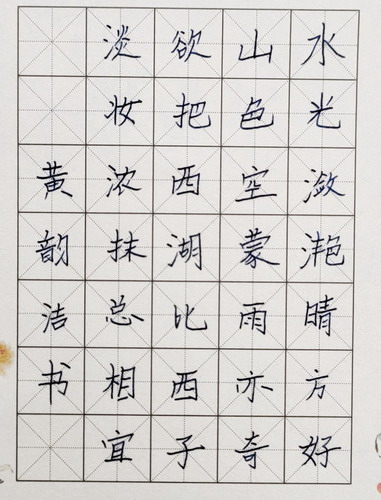 水光潋滟晴方好
山色空蒙雨亦奇
欲把西湖比西子
淡妆浓抹总相宜
黄韵洁书